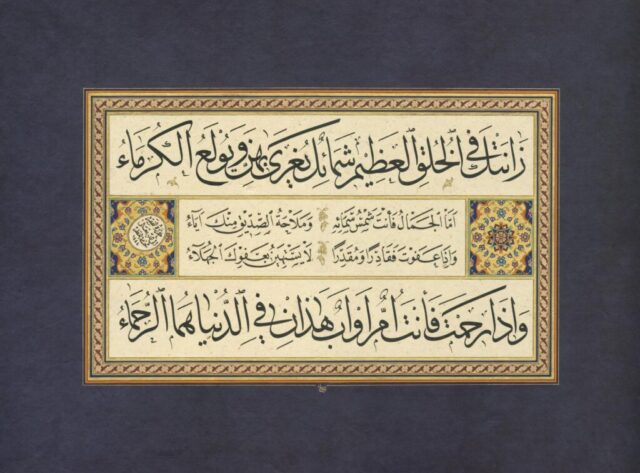 زَانَتْكَ فِي الْخُلُقِ الْعَظِيمِ شَمَائِلٌ يُغْرَى بِهِنَّ وَيُولَعُ الْكُرَمَاءُ
أَمَّا الْجَمَالُ فَأَنْتَ شَمْسُ سَمَائِهِ وَمَلَاحَةُ الصِّدِّيقِ مِنْكَ أَيَاءُ
وَإِذَا عَفَوْتَ فَقَادِرًا وَمُقَدَّرًا لَا يَسْتَهِينُ بِعَفْوِكَ الْجُهَلَاءُ
وَإِذَا رَحِمْتَ فَأَنْتَ أُمٌّ أَوْ أَبٌ هَذَانِ فِي الدُّنْيَا هُمَا الرُّحَمَاءُ